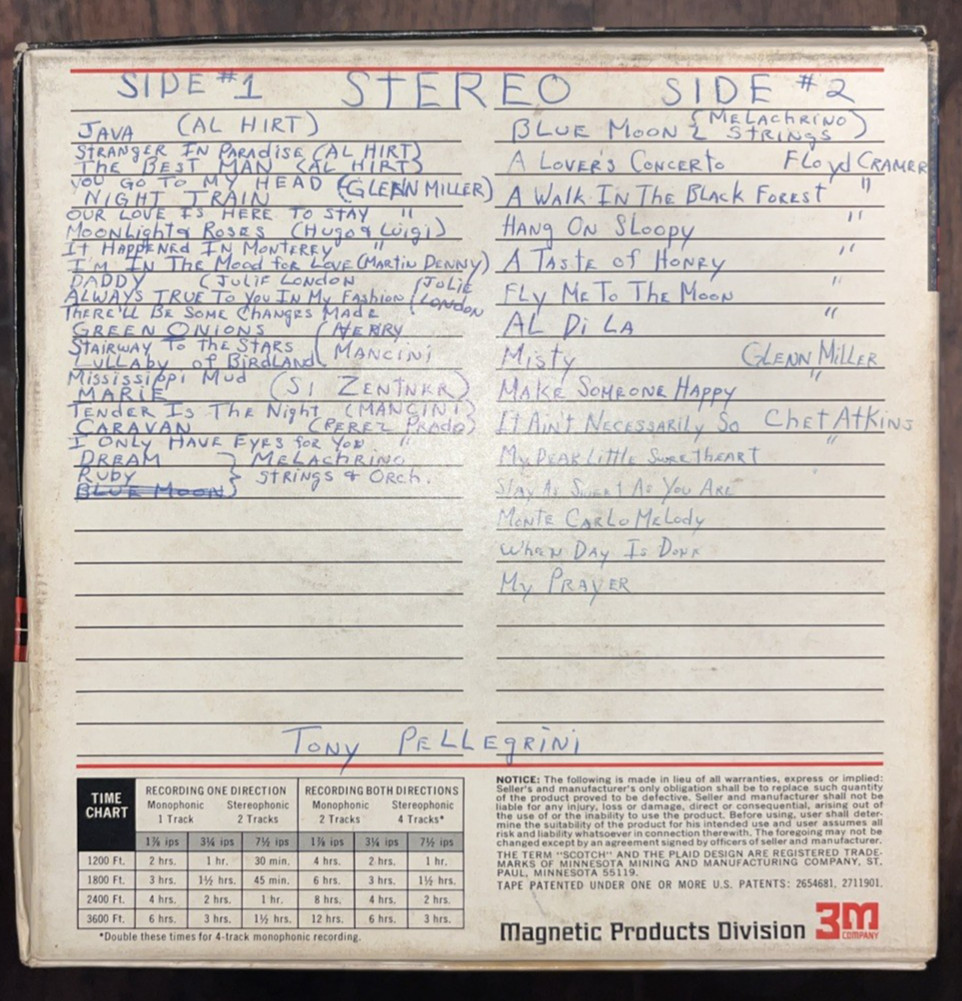 SIDE #1 STEREO SIDE #2
JAVA (AL HIRT)
STRANGER IN PARADISE (AL HIRT)
THE BEST MAN (AL HIRT)
YOU GO TO MY HEAD (GLENN MILLER)
NIGHT TRAIN
OUR LOVE IS HERE TO STAY "
MOONLIGHT & ROSES (HUGO & LUIGI)
IT HAPPENED IN MONTERREY "
I'M IN THE MOOD FOR LOVE (MARTIN DENNY)
DADDY (JULIE LONDON
ALWAYS TRUE TO YOU IN MY FASHION (JULIE LONDON
THERE'LL BE SOME CHANGES MADE
GREEN ONIONS (HENRY
STAIRWAY TO THE STARS MANCINI
LULLABY OF BIRDLAND
MISSISSIPPI MUD (SI ZENTNER)
MARIE
TENDER IS THE NIGHT (MANCINI)
CARAVAN (PEREZ PRADO)
I ONLY HAVE EYES FOR YOU "
DREAM } MELACHRINO
RUBY } STRINGS & ORCH.
BLUE MOON
BLUE MOON { MELACHRINO STRINGS )
A LOVER'S CONCERTO FLOYD CRAMER
A WALK IN THE BLACK FOREST "
HANG ON SLOOPY "
A TASTE OF HONEY "
FLY ME TO THE MOON "
AL DI LA "
MISTY GLENN MILLER
MAKE SOMEONE HAPPY "
IT AIN'T NECESSARILY SO CHET ATKINS
MY DEAR LITTLE SWEETHEART "
STAY AS SWEET AS YOU ARE
MONTE CARLO MELODY
WHEN DAY IS DONE
MY PRAYER
TONY PELLEGRINI
TIME CHART
RECORDING ONE DIRECTION RECORDING BOTH DIRECTIONS
Monophonic 1 Track Stereophonic 2 Tracks Monophonic 2 Tracks Stereophonic 4 Tracks*
1⅞ ips 3¾ ips 7½ ips 1⅞ ips 3¾ ips 7½ ips
1200 Ft. 2 hrs. 1 hr. 30 min. 4 hrs. 2 hrs. 1 hr.
1800 Ft. 3 hrs. 1½ hrs. 45 min. 6 hrs. 3 hrs. 1½ hrs.
2400 Ft. 4 hrs. 2 hrs. 1 hr. 8 hrs. 4 hrs. 2 hrs.
3600 Ft. 6 hrs. 3 hrs. 1½ hrs. 12 hrs. 6 hrs. 3 hrs.
*Double these times for 4-track monophonic recording.
NOTICE: The following is made in lieu of all warranties, express or implied:
Seller's and manufacturer's only obligation shall be to replace such quantity
of the product proved to be defective. Seller and manufacturer shall not be
liable for any injury, loss or damage, direct or consequential, arising out of
the use of or the inability to use the product. Before using, user shall deter-
mine the suitability of the product for his intended use and user assumes all
risk and liability whatsoever in connection therewith. The foregoing may not be
changed except by an agreement signed by officers of seller and manufacturer.
THE TERM "SCOTCH" AND THE PLAID DESIGN ARE REGISTERED TRADE-
MARKS OF MINNESOTA MINING AND MANUFACTURING COMPANY, ST.
PAUL, MINNESOTA 55119.
TAPE PATENTED UNDER ONE OR MORE U.S. PATENTS: 2654681, 2711901.
Magnetic Products Division 3M COMPANY